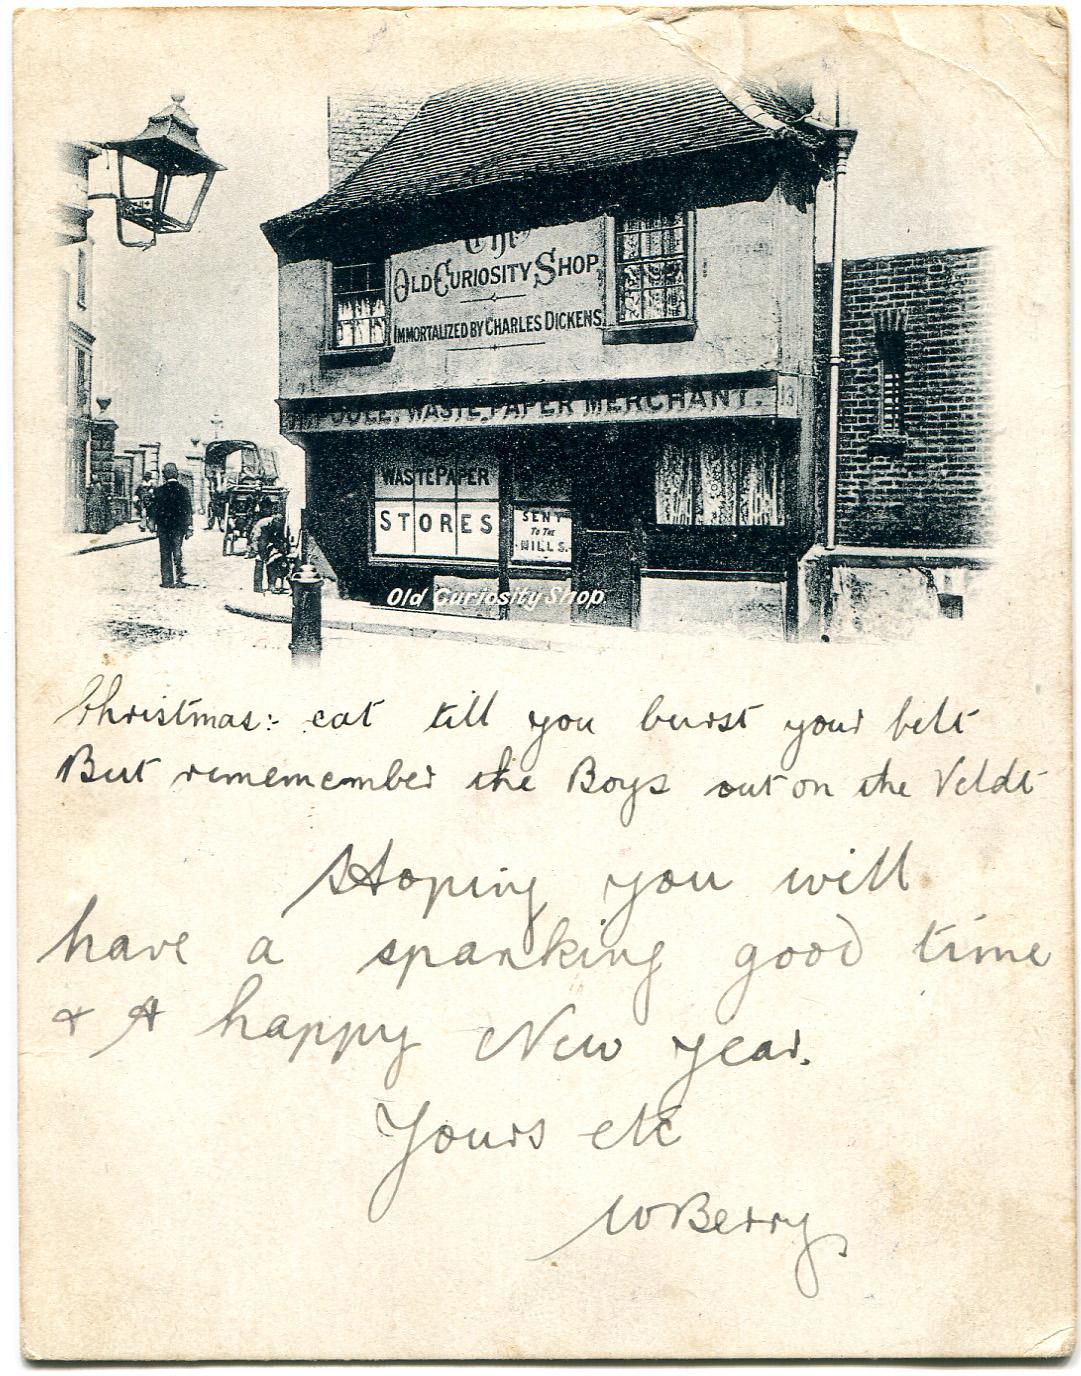 The
OLD CURIOSITY SHOP
IMMORTALIZED BY CHARLES DICKENS
POOLE. WASTE PAPER MERCHANT. 13
WASTE PAPER
STORES
SENT
TO THE
MILLS.
Old Curiosity Shop
Christmas:- eat till you burst your belt
But rememember the Boys out on the Veldt
Hoping you will
have a spanking good time
& A happy New Year.
Yours etc
WBerry